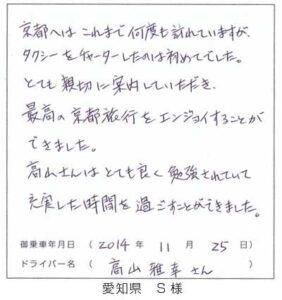 京都へは これまで何度も訪れていますが、
タクシーをチャーターしたのは初めてでした。
とても親切に案内していただき、
最高の京都旅行をエンジョイすることが
できました。
高山さんはとても良く勉強されていて
充実した時間を過ごすことができました。
御乗車年月日 ( 2014 年 11 月 25 日 )
ドライバー名 ( 高山 雅幸 さん )
愛知県 S 様